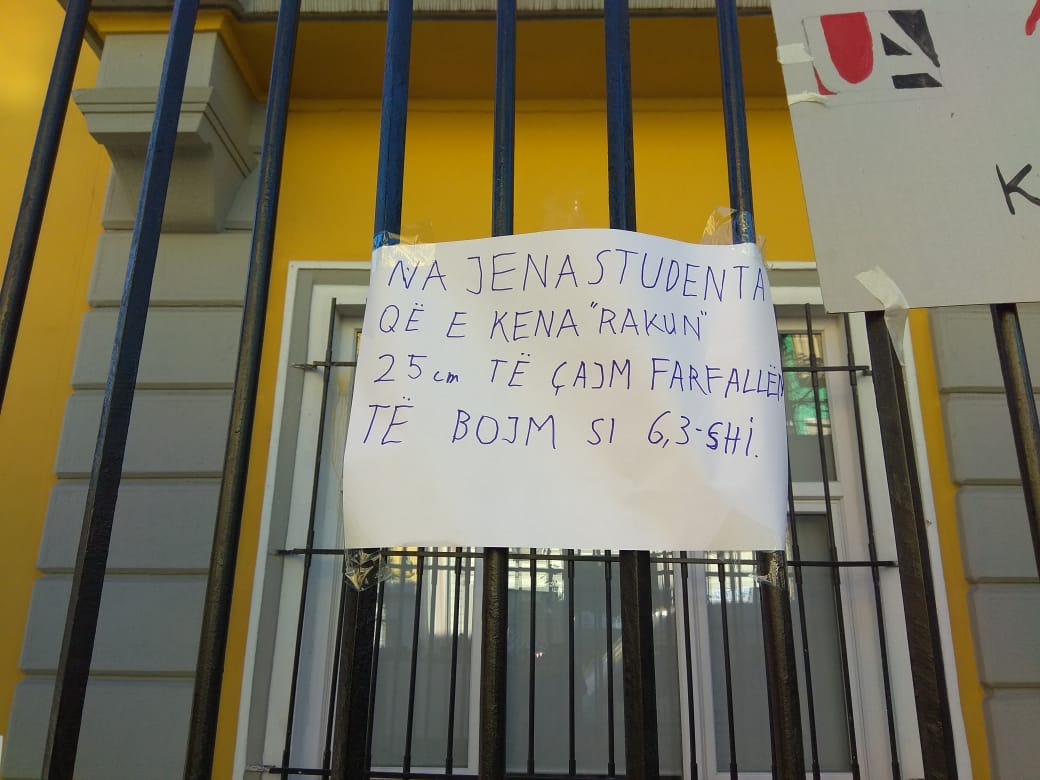 NA JENA STUDENTA
QË E KENA "RAKUN"
25cm TË ÇAJM FARFALLËN
TË BOJM SI 6,3-SHI.
K